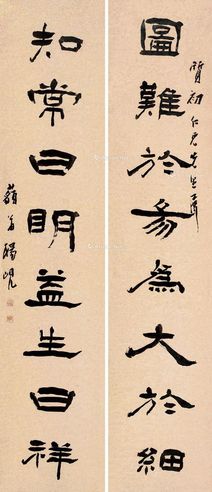 圖難於易為大於細
質初仁兄先生屬
知常曰明益生曰祥
楊峴